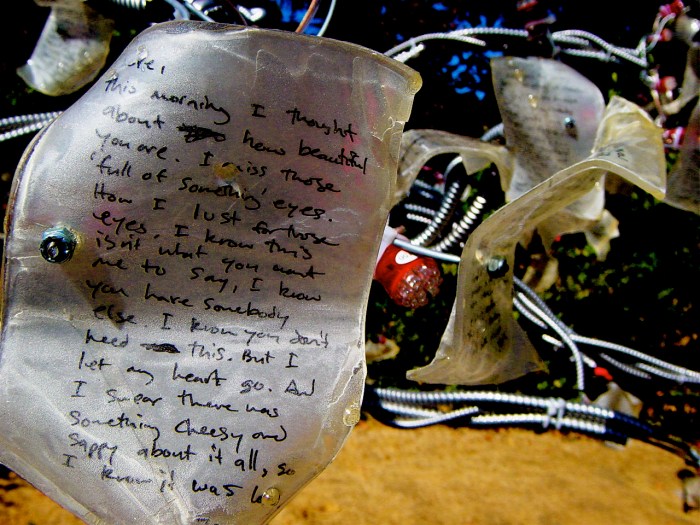 this morning I thought
about how beautiful
you are. I miss those
'full of something' eyes.
How I lust for those
eyes. I know this
isn't what you want
me to say, I know
you have somebody
else. I know you don't
need this. But I
let my heart go. And
I swear there was
something cheesy and
sappy about it all, so
I know it was